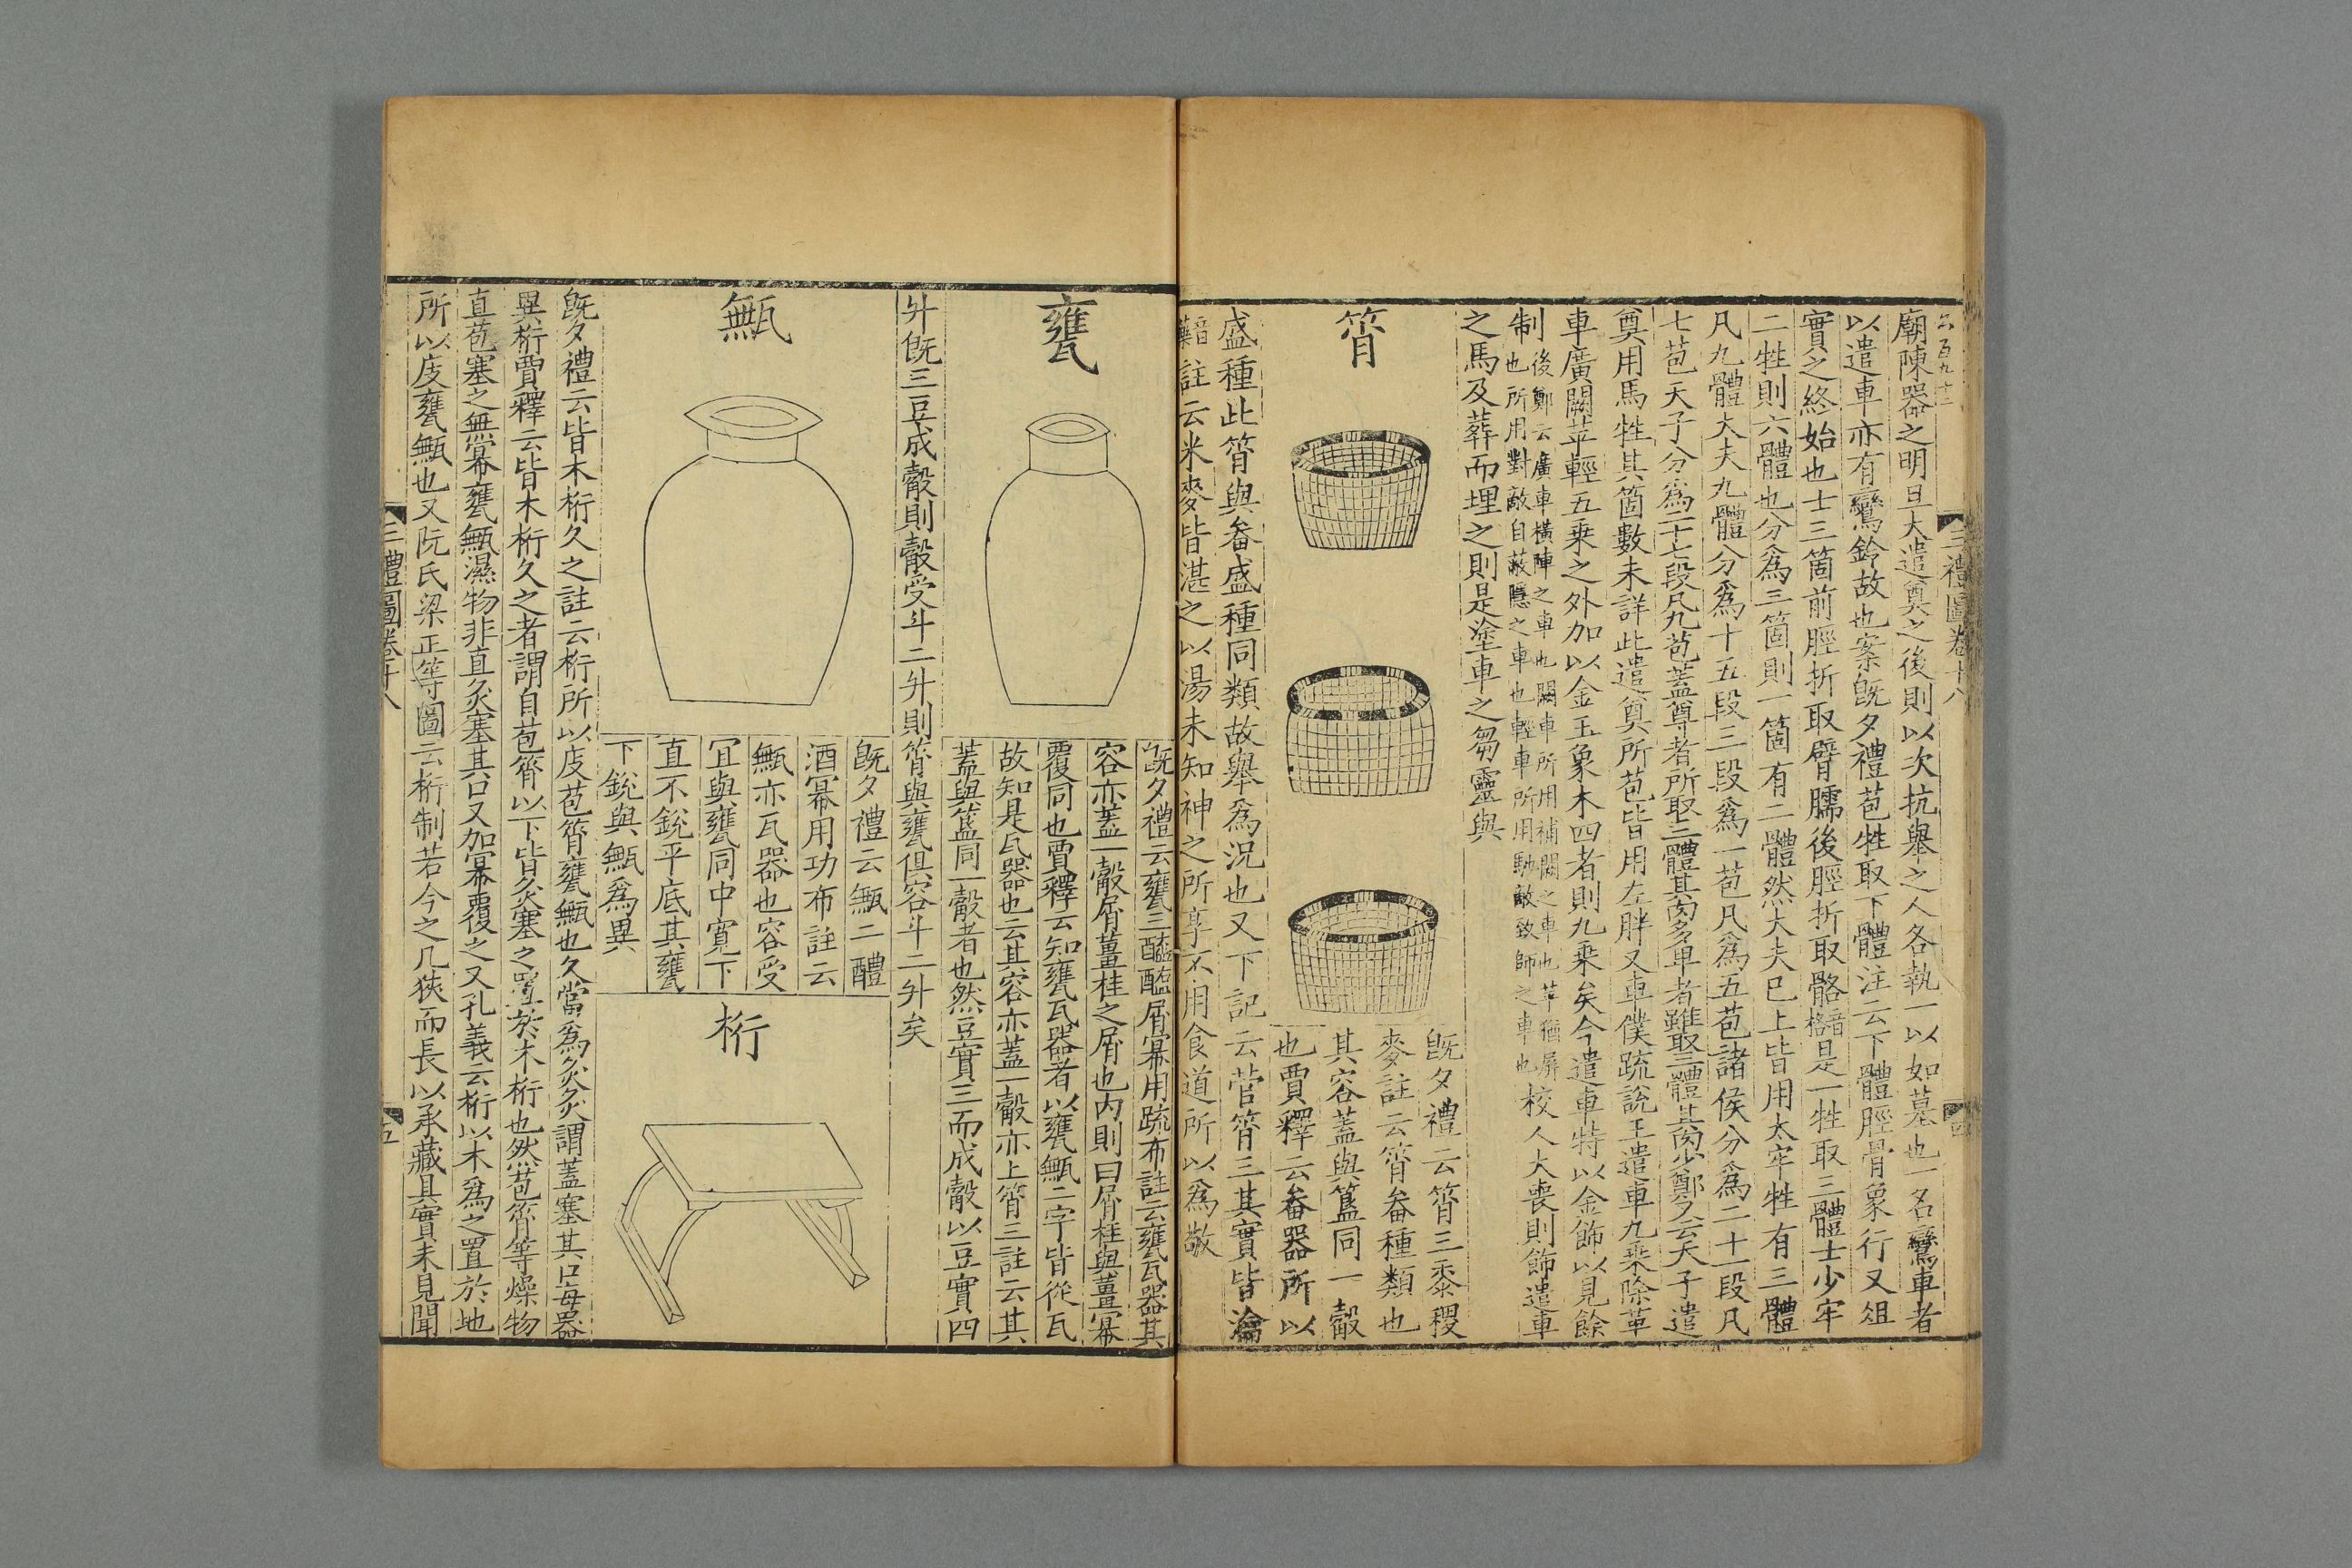 三禮圖卷十八
四
廟陳器之明旦大遣奠之後則以次抗舉之人各執一以如墓也一名鸞車者
以遣車亦有鸞鈴故也案旣夕禮苞牲取下體注云下體脛骨象行又俎
實之終始也士三箇前脛折取臂臑後脛折取骼音格是一牲取三體士少牢
二牲則六體也分爲三箇則一箇有二體然大夫已上皆用太牢牲有三體
凡九體大夫九體分爲十五段三段爲一苞凡爲五苞諸侯分爲二十一段凡
七苞天子分爲二十七段凡九苞蓋尊者所取三體其肉多卑者雖取三體其肉少鄭又云天子遣
奠用馬牲其箇數未詳此遣奠所苞皆用左胖又車僕疏說王遣車九乗除革
車廣闕苹輕五乗之外加以金玉象木四者則九乗矣今遣車特以金飾以見餘
制後鄭云廣車橫陣之車也闕車所用補闕之車也苹猶屏也所用對敵自蔽隱之車也輕車所用馳敵致師之車也校人大喪則飾遣車
之馬及葬而埋之則是塗車之芻靈與
筲
旣夕禮云筲三黍稷
麥註云筲畚種類也
其容蓋與簋同一觳
也賈釋云畚器所以
盛種此筲與畚盛種同類故舉爲況也又下記云菅筲三其實皆瀹
音藥註云米麥皆湛之以湯未知神之所享不用食道所以爲敬
甕
旣夕禮云甕三醯醢屑冪用疏布註云甕瓦器其
容亦蓋一觳屑薑桂之屑也内則曰屑桂與薑冪
覆同也賈釋云知甕瓦器者以甕甒二字皆從瓦
故知是瓦器也云其容亦蓋一觳亦上筲三註云其
蓋與簋同一觳者也然豆實三而成觳以豆實四
升旣三豆成觳則觳受斗二升則筲與甕俱容斗二升矣
甒
旣夕禮云甒二醴
酒冪用功布註云
甒亦瓦器也容受
冝與甕同中寬下
直不銳平底其甕
下銳與甒爲異
桁
旣夕禮云皆木桁久之註云桁所以庋苞筲甕甒也久當爲灸灸謂蓋塞其口每器
異桁賈釋云皆木桁久之者謂自苞筲以下皆灸塞之置於木桁也然苞筲等燥物
直苞塞之無冪甕甒濕物非直灸塞其口又加冪覆之又孔義云桁以木爲之置於地
所以庋甕甒也又阮氏梁正等圖云桁制若今之几狹而長以承藏具實未見聞
三禮圖卷十八
五